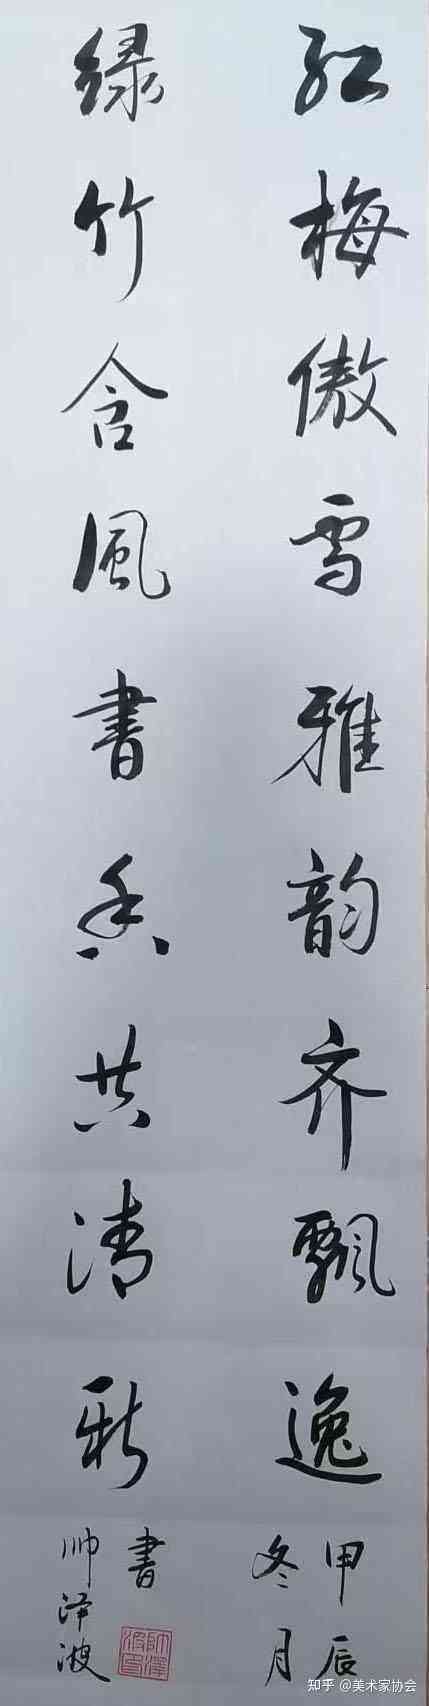 红梅傲雪雅韵齐飘逸
甲辰
冬月
绿竹含风書香共清新
書
帅泽波
帅泽波印
知乎 @美术家协会